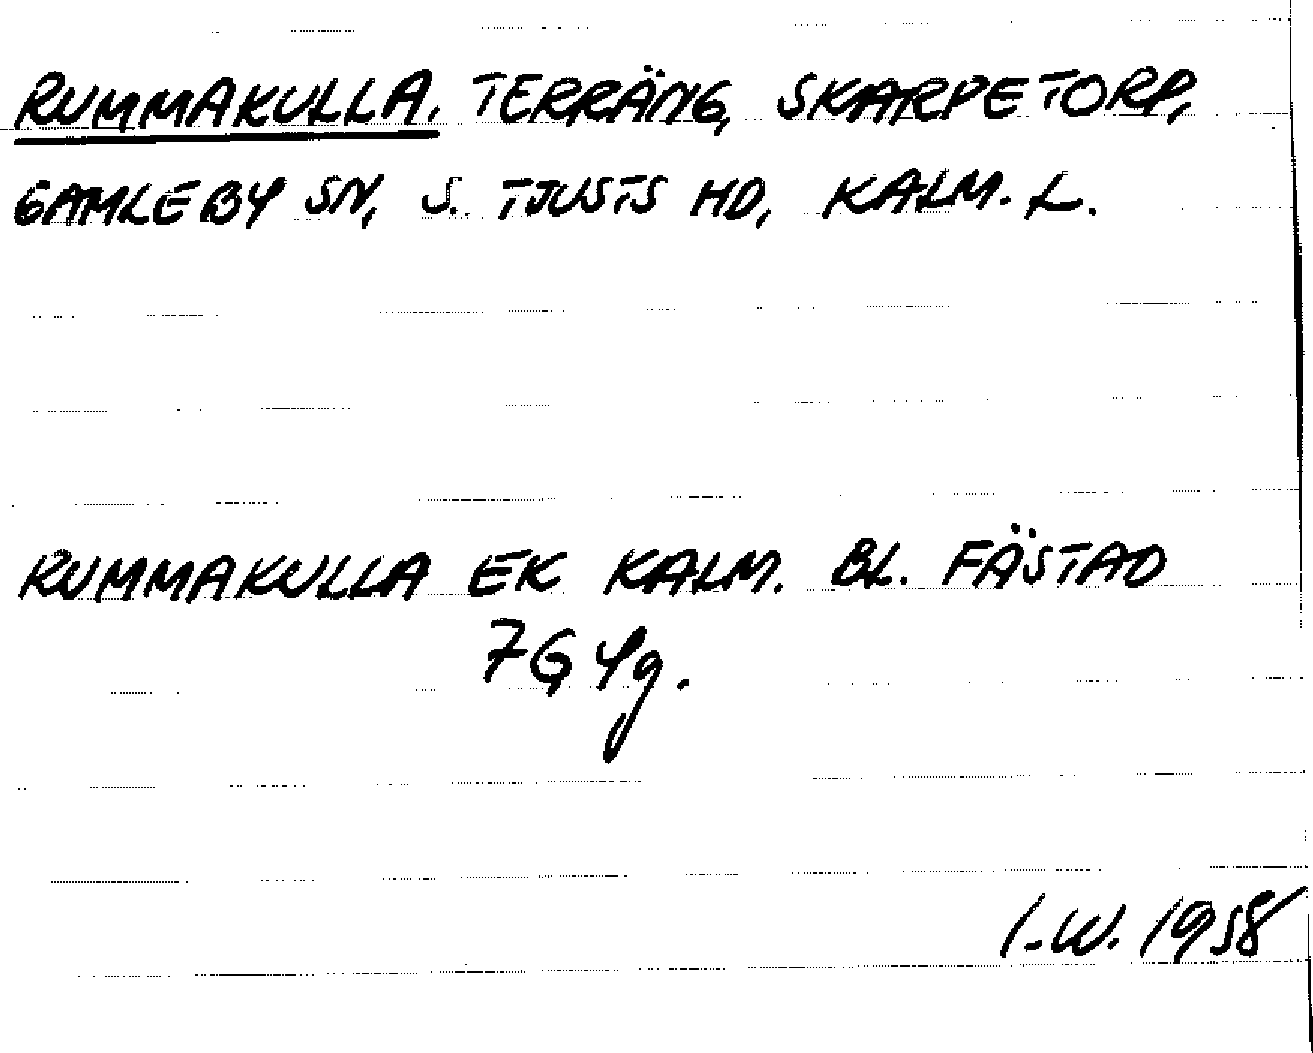 RUMMAKULLA. TERRÄNG, SKARPETORP,
GAMLEBY SN, S. TJUSTS HD, KALM. L.
RUMMAKULLA EK KALM. BL. FÄSTAD
7G 4g.
I.W. 1958